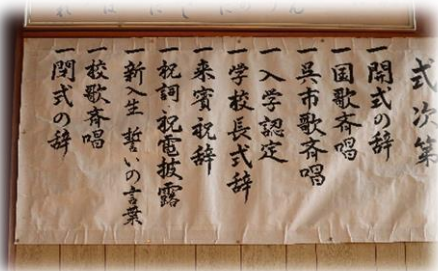 式次第
一 開式の辞
一 国歌斉唱
一 呉市歌斉唱
一 入学認定
一 学校長式辞
一 来賓祝辞
一 祝詞祝電披露
一 新入生誓いの言葉
一 校歌斉唱
一 閉式の辞